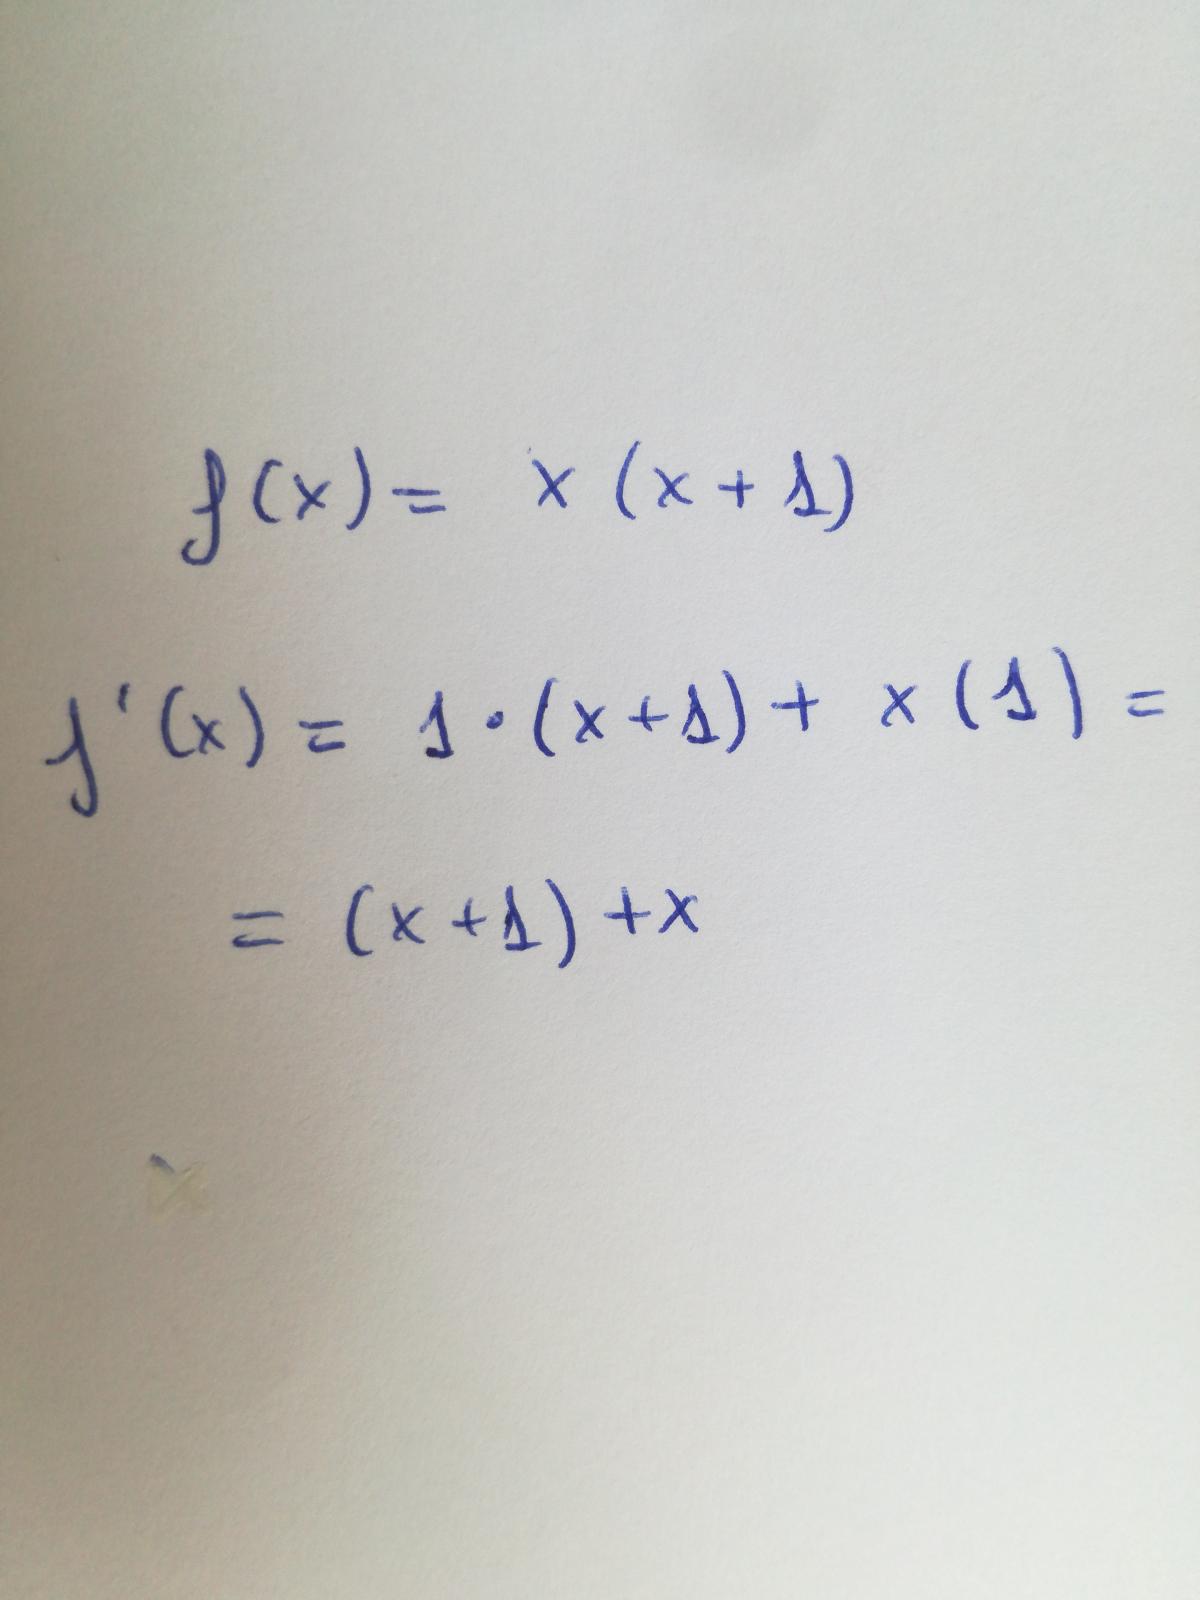 f(x) = x (x + 1)
f'(x) = 1 · (x + 1) + x (1) =
= (x + 1) + x